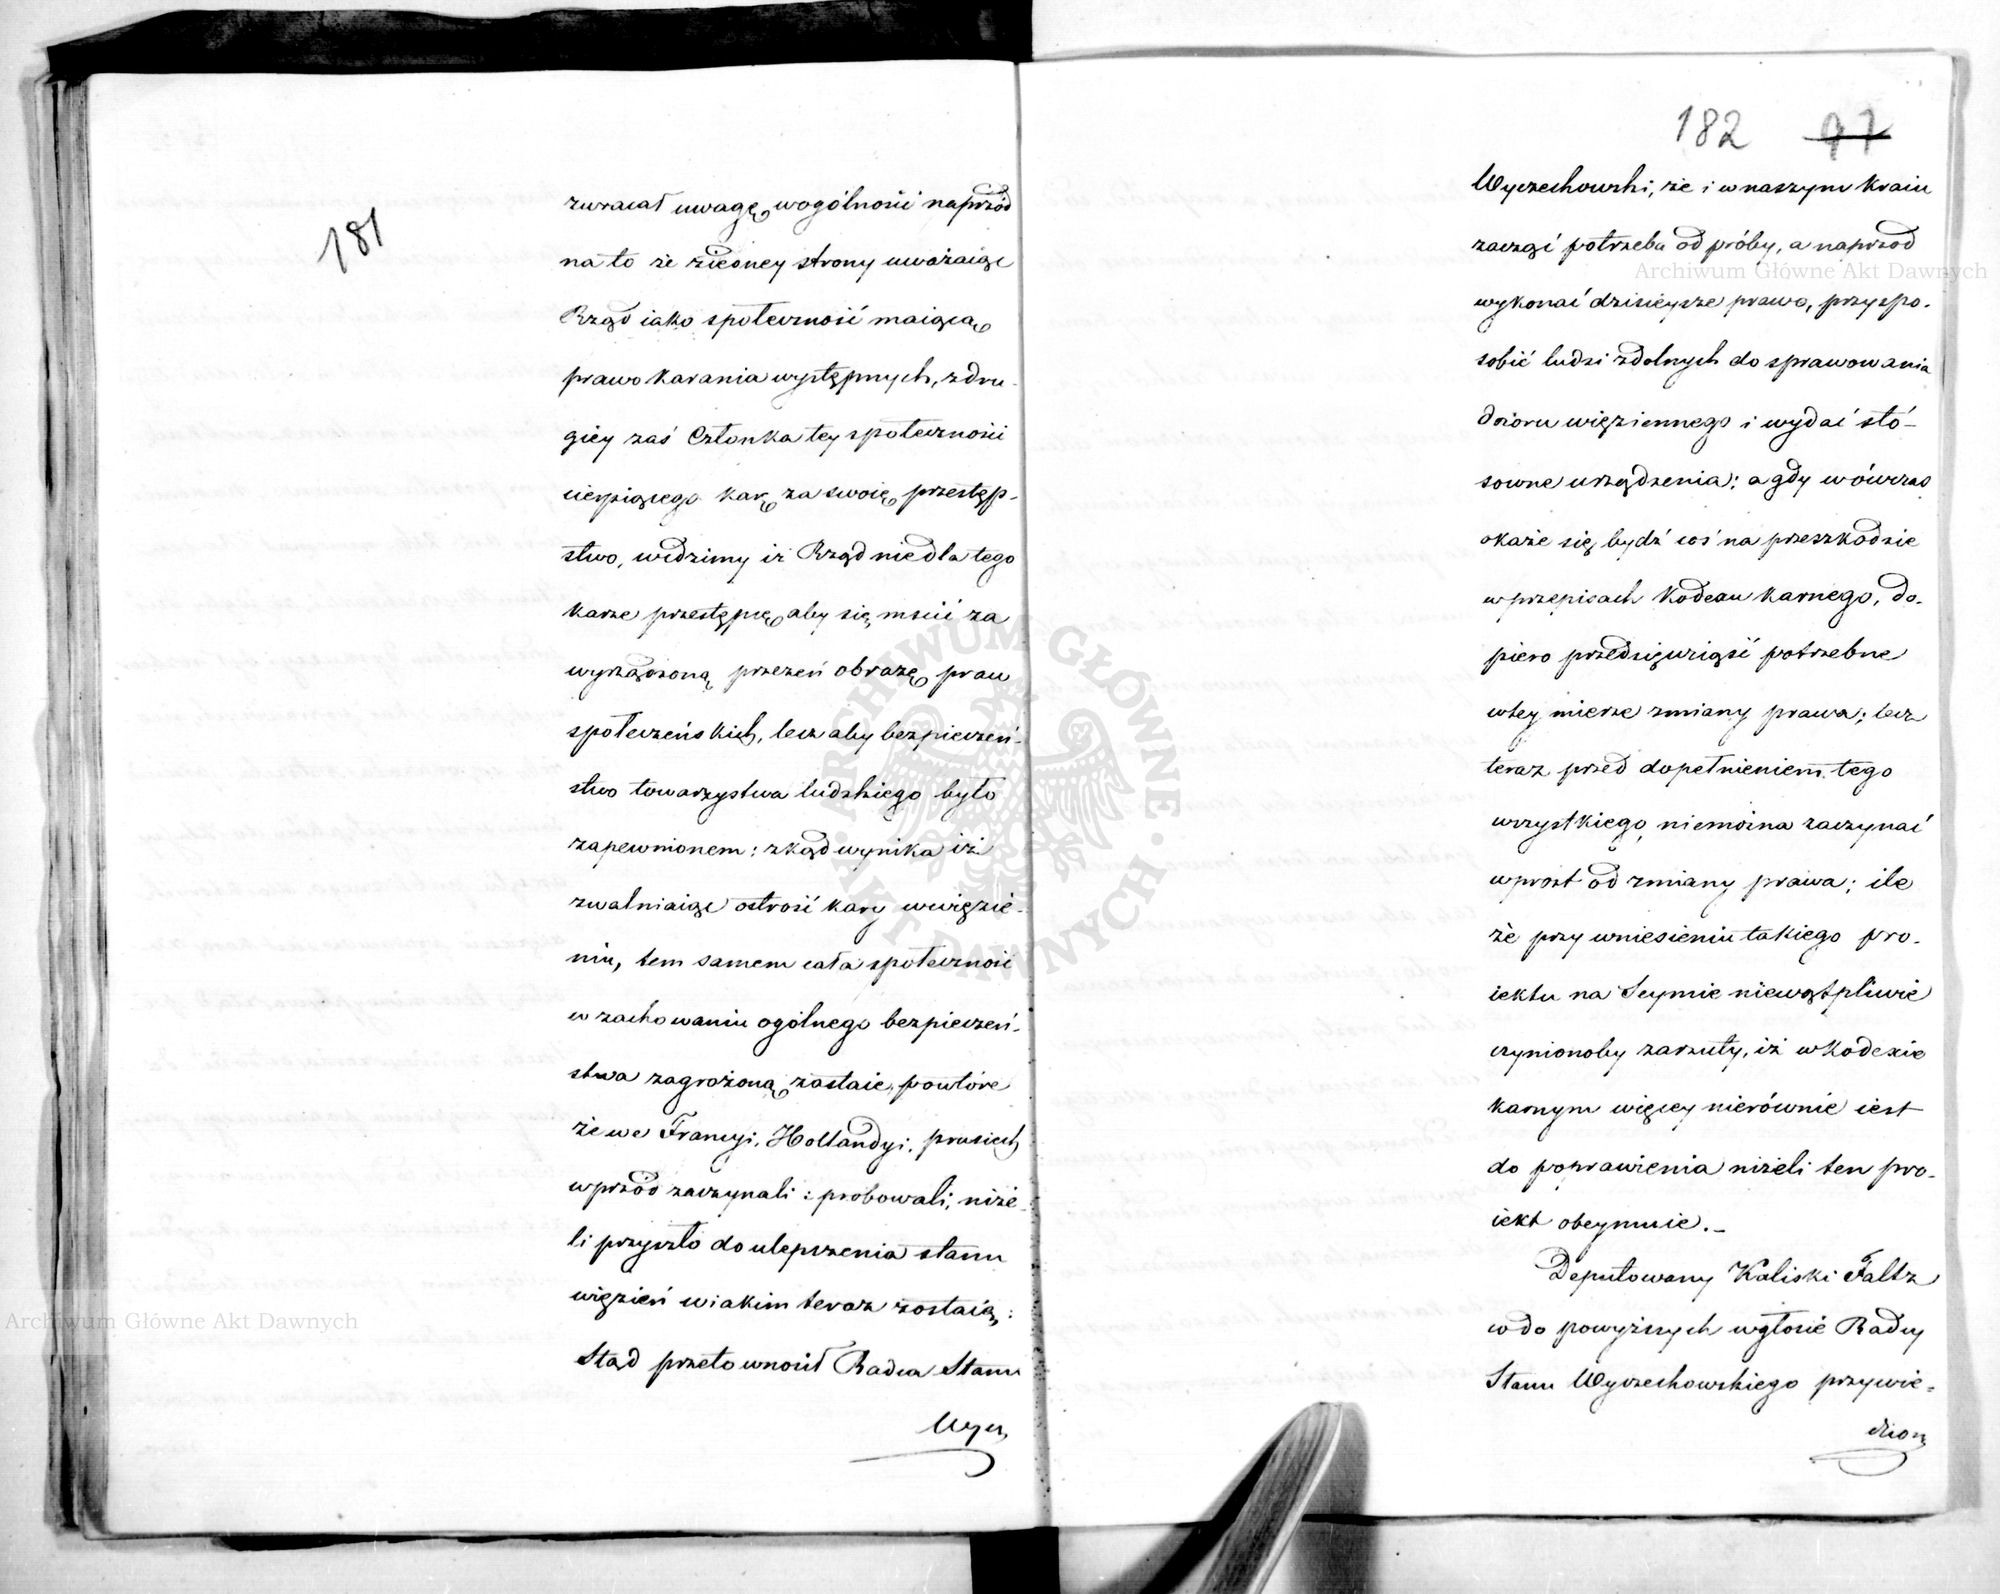 181
zwracał uwagę wogólności naprzód
na to że zjedney strony uważaiąc
Rząd iako społeczność maiącą
prawo karania występnych, zdru-
giey zaś Członka tey społeczności
cierpiącego karę za swoię przestęp-
stwo, widzimy iż Rząd nie dla tego
karze przestępcę aby się mścić za
wyrządzoną przezeń obrazę praw
społeczeńskich, lecz aby bezpieczeń-
stwo towarzystwa ludzkiego było
zapewnionem; zkąd wynika iż
zwalniaiąc ostrość kary w więzie-
niu, tem samem cała społeczność
w zachowaniu ogólnego bezpieczeń-
stwa zagrożoną zostaie, powtóre
że we Francyi, Hollandyi, prusiech
wprzód zaczynali: probowali, niże-
li przyszło do ulepszenia stanu
więzień w iakim teraz zostaią:
Stąd przeto wnosił Radca Stanu
Wycz
182 97
Wyczechowski, że i w naszym kraiu
zacząć potrzeba od próby, a naprzod
wykonać dzisieysze prawo, przyspo-
sobić ludzi zdolnych do sprawowania
dozoru więziennego i wydać stó-
sowne urządzenia; a gdy wówczas
okaże się bydź coś na przeszkodzie
w przepisach Kodexu karnego, do-
piero przedsięwziąść potrzebne
w tey mierze zmiany prawa; lecz
teraz przed dopełnieniem tego
wszystkiego niemożna zaczynać
wprost od zmiany prawa; ile
że przy wniesieniu takiego pro-
iektu na Seymie niewątpliwie
czynionoby zarzuty, iż w kodexie
karnym więcey nierównie iest
do poprawienia niżeli ten pro-
iekt obeymuie.-
Deputowany Kaliski Faltz
co do powyższych w głosie Radcy
Stanu Wyczechowskiego przywie-
dzion
Archiwum Główne Akt Dawnych
Archiwum Główne Akt Dawnych
ARCHIWUM GŁÓWNE AKT DAWNYCH